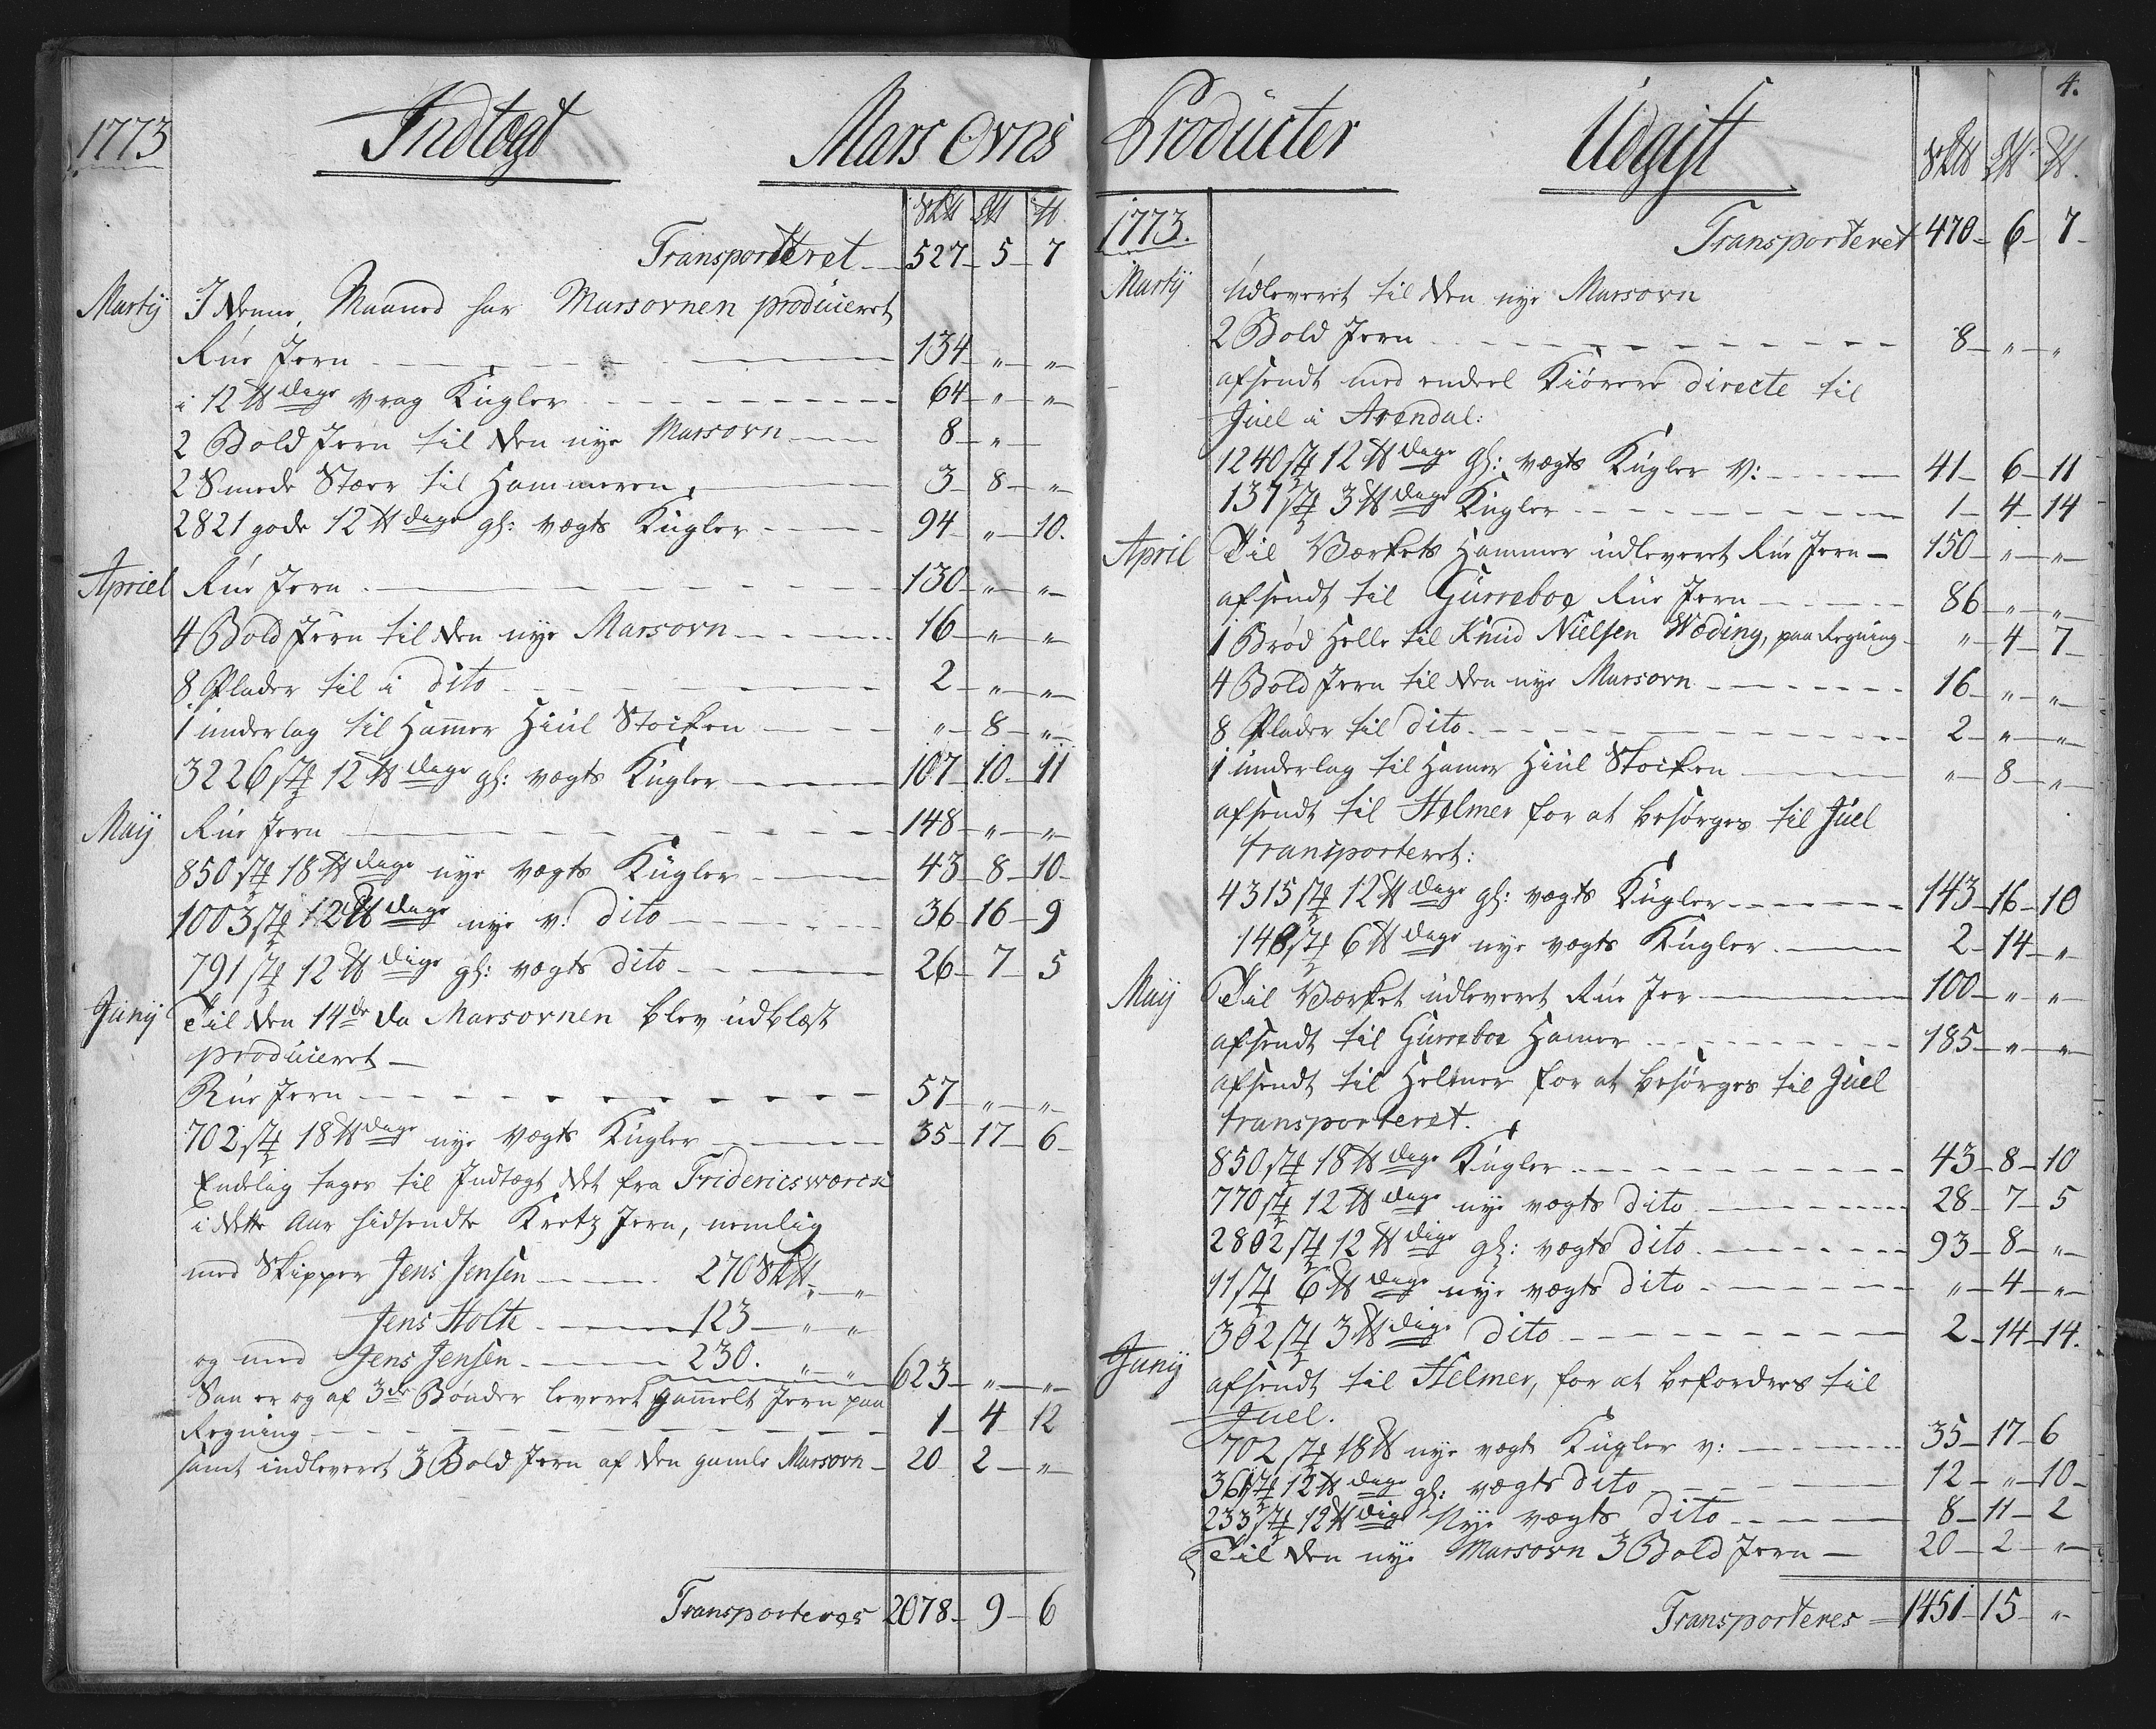 1773
Indtægt
Mars Ovns
Sk℔ L℔ ℔
Transporteret 527 5 7
Martij I denne Maaned har Marsovnen produceret
Rue Jern 134 " "
i 12 ℔dige vrag Kugler 64 " "
2 Bold Jern til den nye Marsovn 8 "
2 Smede Stæer til Hammeren 3 8 "
2821 gode 12 ℔dige gl: vægts Kugler 94 " 10.
Apriel Rue Jern 130 " "
4 Bold Jern til den nye Marsovn 16 " "
8 Plader til i dito 2 " "
1 underlag til Hamer Hiul Stocken " 8 "
3226 st 12 ℔dige gl: vægts Kugler 107 10 11
Maij Rue Jern 148 " "
850 st 18 ℔dige nye vægts Kugler 43 8 10
1003 st 12 ℔dige nye v: dito 36 16 9
791 st 12 ℔dige gl: vægts dito 26 7 5
Junij Til den 14de da Marsovnen blev udblæst
produceret
Rue Jern 57 " "
702 st 18 ℔dige nye vægts Kugler 35 17 6
Endelig tages til Indtægt det fra Fridericsværck
i dette Aar hidsendte Kretz Jern, nemlig
med Skipper Jens Jensen 270 Sk℔ "
Jens Holte 123 " "
og med Jens Jensen 230. " " 623 " "
Saa er og af 3de Bønder leveret gamelt Jern paa
Regning 1 4 12
samt indleveret 3 Bold Jern af den gamle Marsovn 20 2 "
Transporteres 2078 9 6
4.
Producter
Udgift
Sk℔ L℔ ℔.
1773.
Transporteret 470 6 7
Martij Udleveret til den nye Marsovn
2 Bold Jern 8 " "
afsendt med endeel Kiørere directe til
Juel i Arendal:
1240 st 12 ℔dige gl: vægts Kugler v: 41 6 11
137 st 3 ℔dige Kugler 1 4 14
April Til Værkets Hammer udleveret Rue Jern 150 " "
afsendt til Gurreboe Rue Jern 86 " "
1 Brød Helle til Knud Nielsen Wæding, paa Regning " 4 7
4 Bold Jern til den nye Marsovn 16 " "
8 Plader til dito 2 " "
1 underlag til Hamer Hiul Stocken " 8 "
afsendt til Helmer for at besørges til Juel
transporteret:
4315 st 12 ℔dige gl: vægts Kugler 143 16 10
148 st 6 ℔dige nye vægts Kugler 2 14 "
Maij Til Værket udleveret Rue Jer 100 " "
afsendt til Gurreboe Hamer 185 " "
afsendt til Helmer for at besørges til Juel
transporteret.
850 st 18 ℔dige Kugler 43 8 10
770 st 12 ℔dige nye vægts dito 28 7 5
2802 st 12 ℔dige gl: vægts dito 93 8 "
11 st 6 ℔dige nye vægts dito " 4 "
302 st 3 ℔dige dito 2 14 14.
Junij
afsendt til Helmer, for at befordres til
Juel.
702 st 18 ℔ nye vægts Kugler v: 35 17 6
361 st 12 ℔dige gl: vægts dito 12 " 10
233 st 12 ℔dige Nye vægts dito 8 11 2
Til den nye Marsovn 3 Bold Jern 20 2 "
Transporteres 1451 15 "